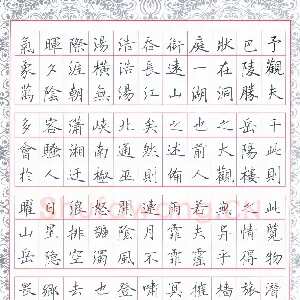 予觀夫
巴陵勝
狀在洞
庭一湖
銜遠山
吞長江
浩浩湯
湯橫無
際涯朝
暉夕陰
氣象萬
千此則
岳陽樓
之大觀
也前人
之述備
矣然則
北通巫
峽南極
瀟湘遷
客騷人
多會於
此覽物
之情得
無異乎
若夫霪
雨霏霏
連月不
開陰風
怒號濁
浪排空
日星隱
曜山岳
潛
旅
檣
摧
冥
嘯
登
也
去
鄉
畏